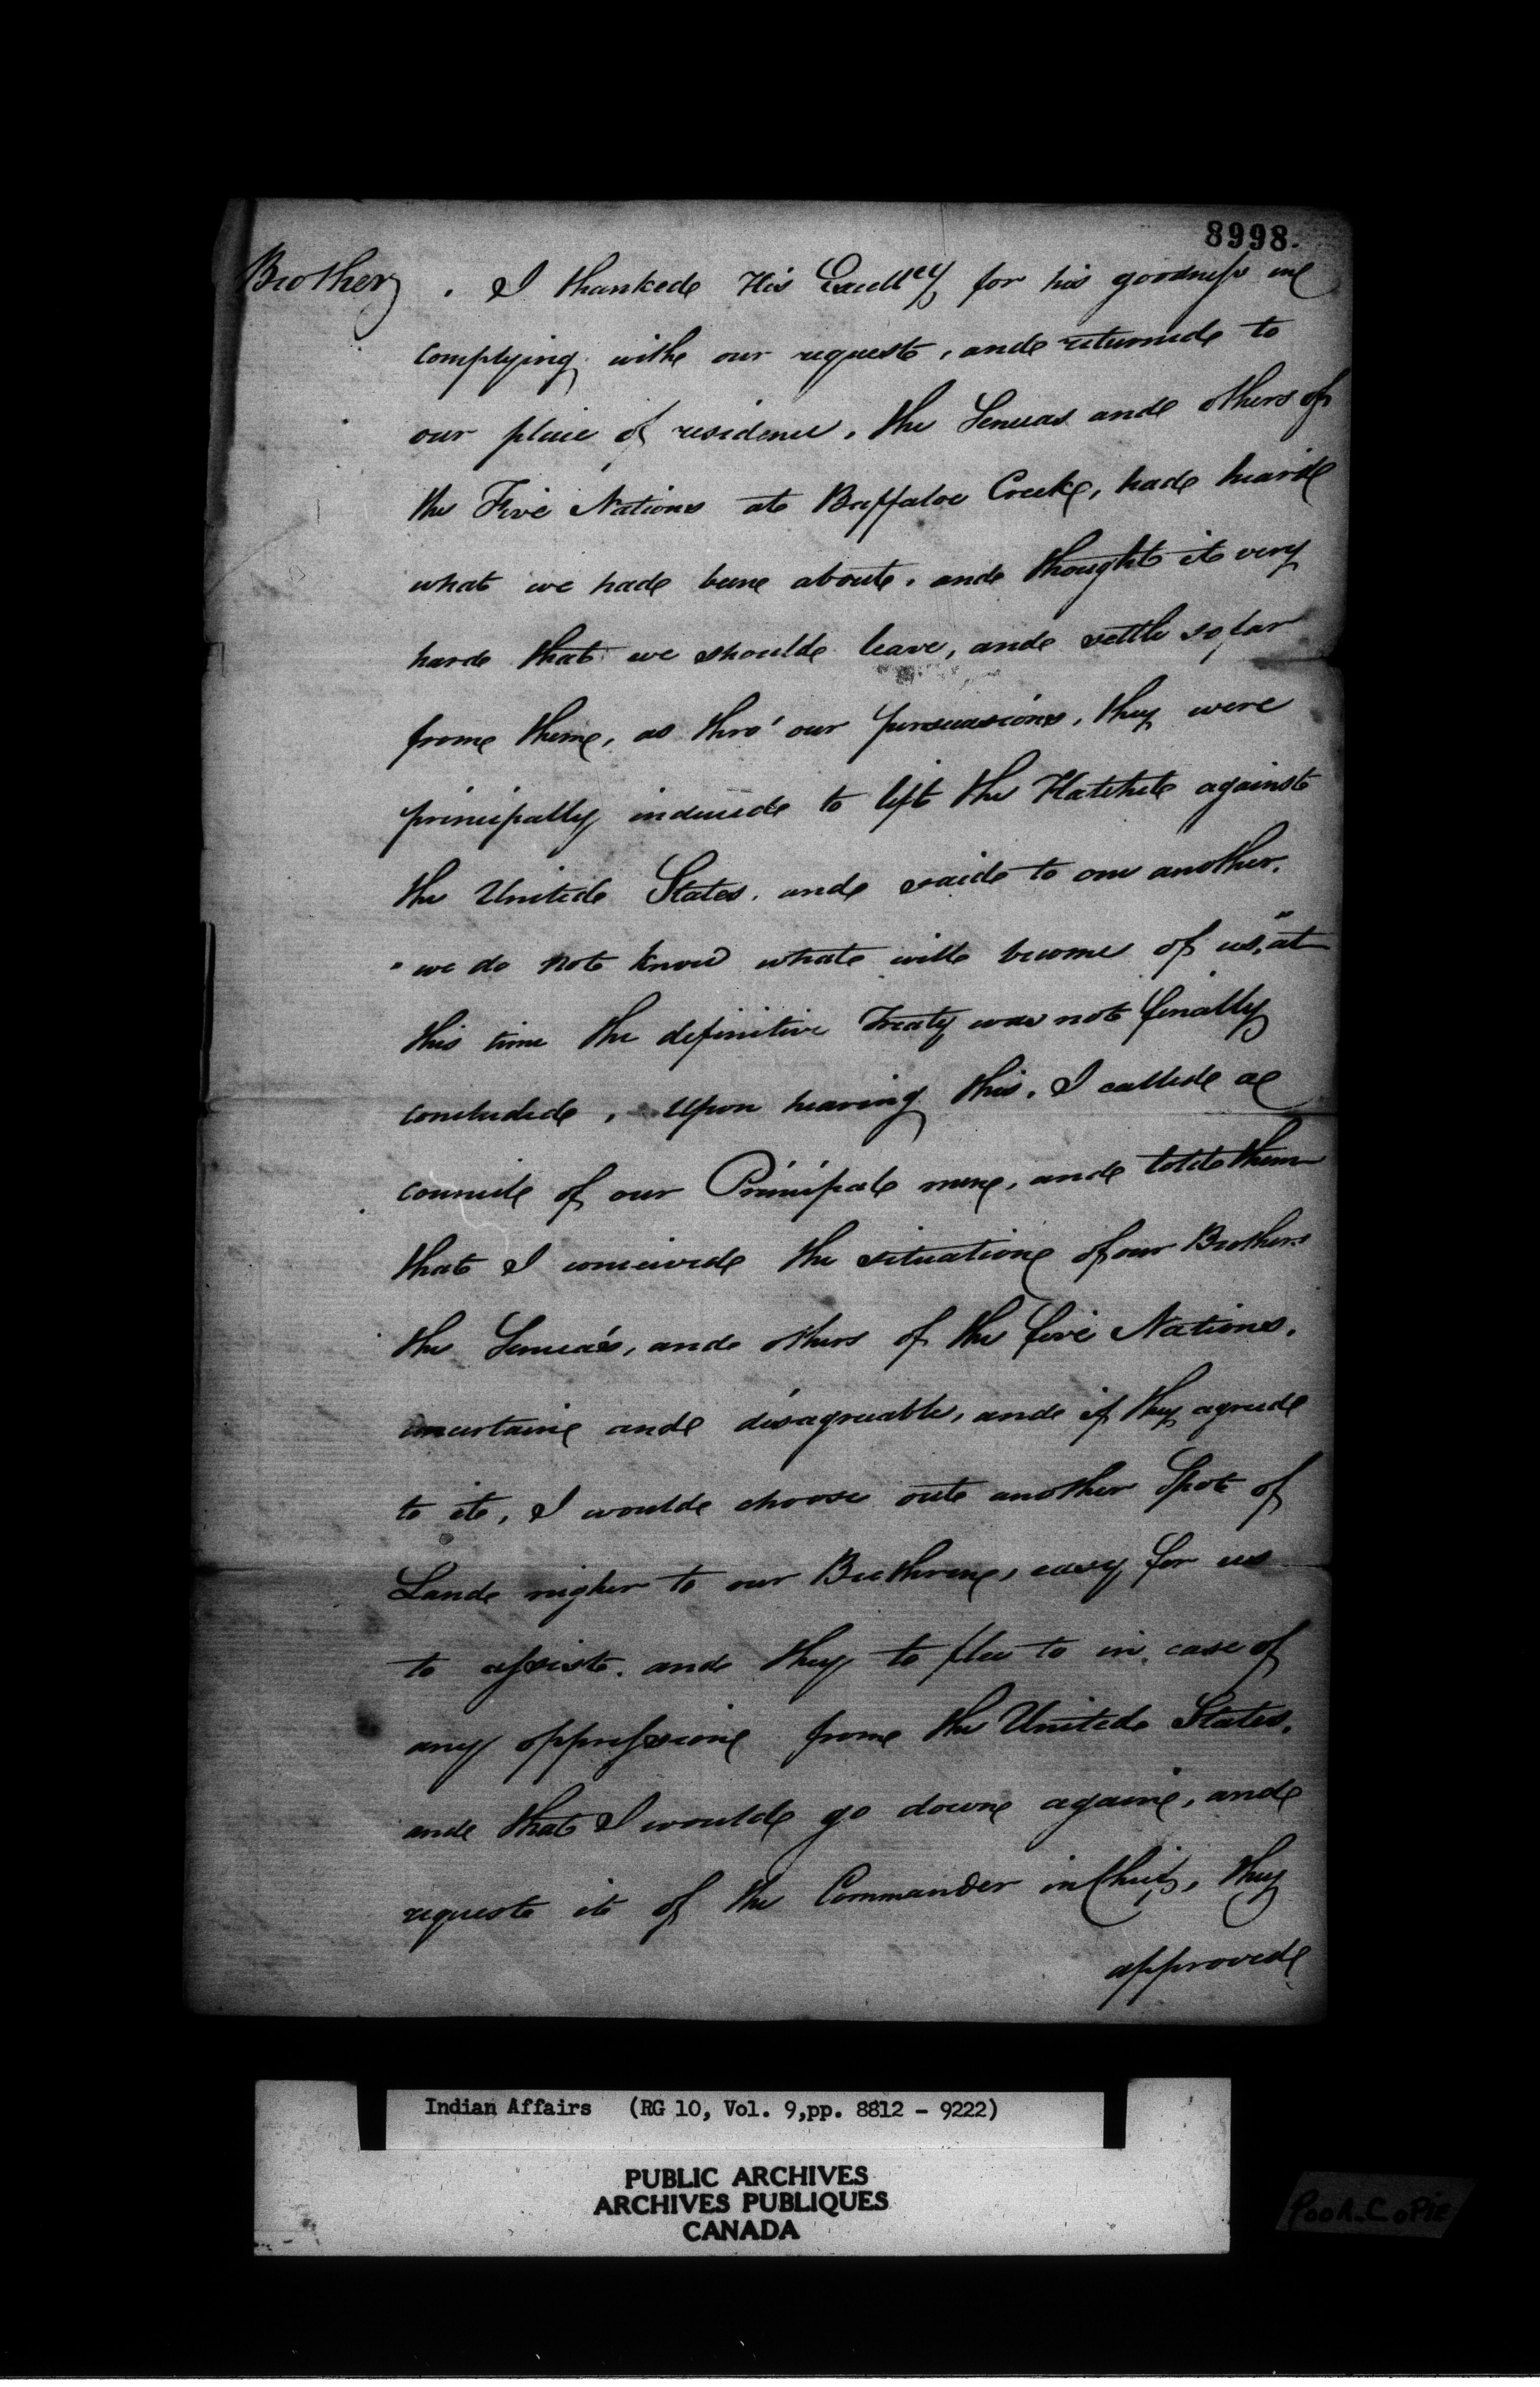 8998.
Brother, I thanked His Excell^cy for his goodness in
complying with our request, and returned to
our place of residence, the Senecas and others of
the Five Nations at Buffaloe Creek, had heard
what we had been about, and thought it very
hard that we should leave, and settle so far
from them, as thro' our persuasions, they were
principally induced to lift the Hatchet against
the United States, and said to one another,
"we do not know what will become of us," at
this time the definitive Treaty was not finally
concluded, Upon hearing this, I called a
council of our Principal men, and told them
that I conceived the situation of our Brothers
the Senecas, and others of the five Nations,
uncertain and disagreeable, and if they agreed
to it, I would choose out another Spot of
Land nigher to our Brethren, easy for us
to assist, and they to flee to in case of
any oppression from the United States,
and that I would go down again, and
request it of the Commander in Chief, they
approved
Indian Affairs (RG 10, Vol. 9,pp. 8812 - 9222)
PUBLIC ARCHIVES
ARCHIVES PUBLIQUES
CANADA
Poor Copie